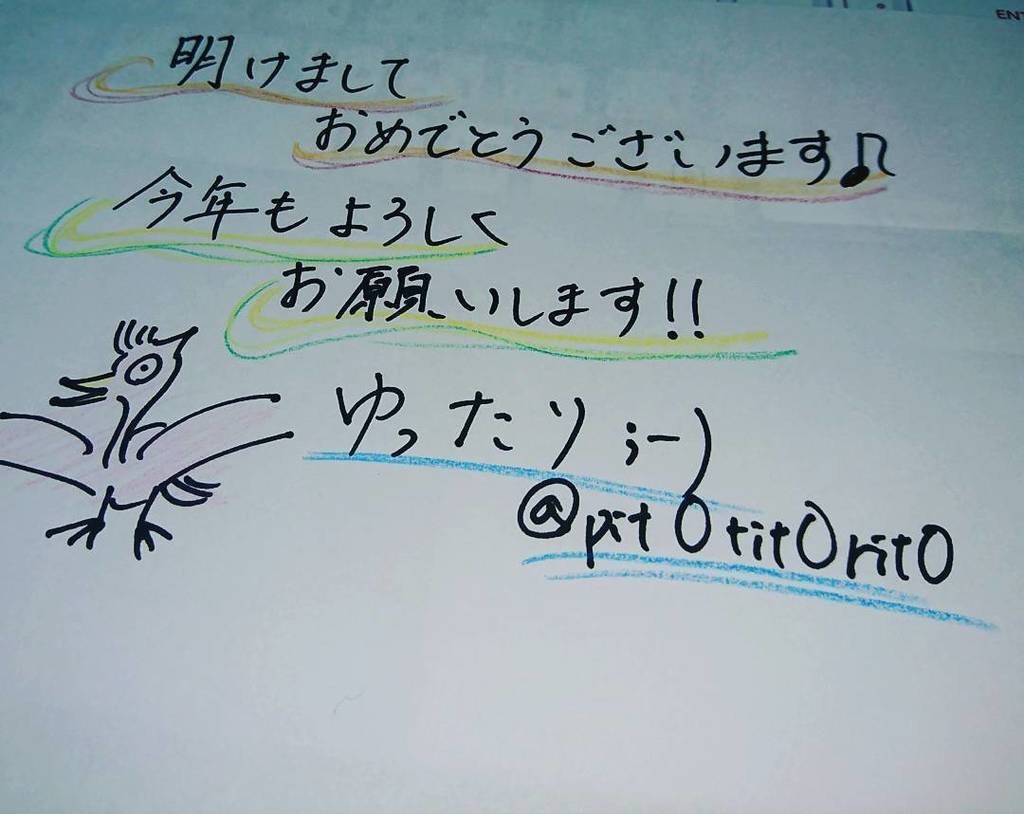 明けまして
おめでとうございます♪
今年もよろしく
お願いします!!
ゆったり ;-)
@pit0tit0rit0